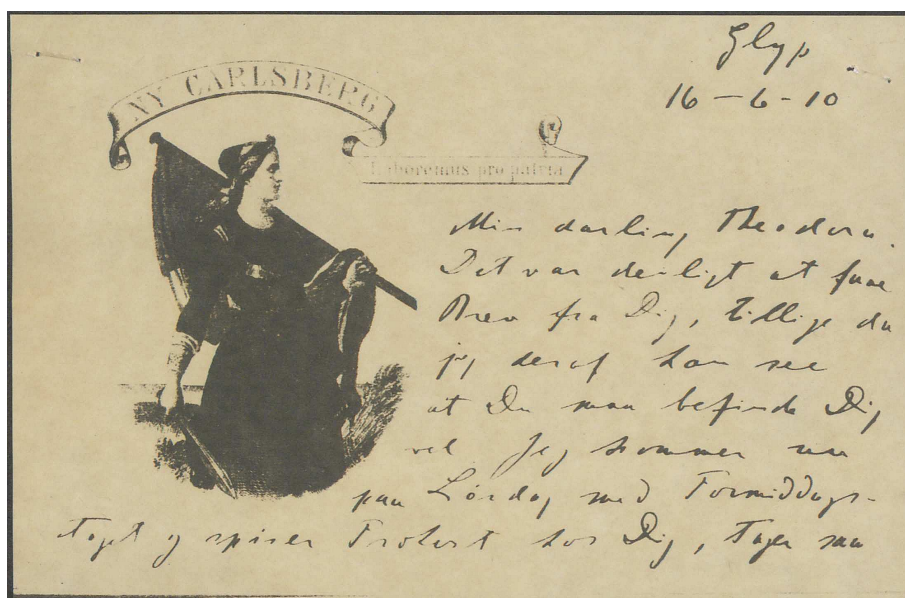 Glyp
16-6-10
NY CARLSBERG
Laboremus pro patria
Min darling Theodora.
Det var deiligt at faae
Brev fra Dig, tillige da
jeg deraf kan see
at Du maa befinde Dig
vel Jeg kommer nu
paa Lørdag med Formiddags-
toget og spiser Frokost hos Dig, tager saa